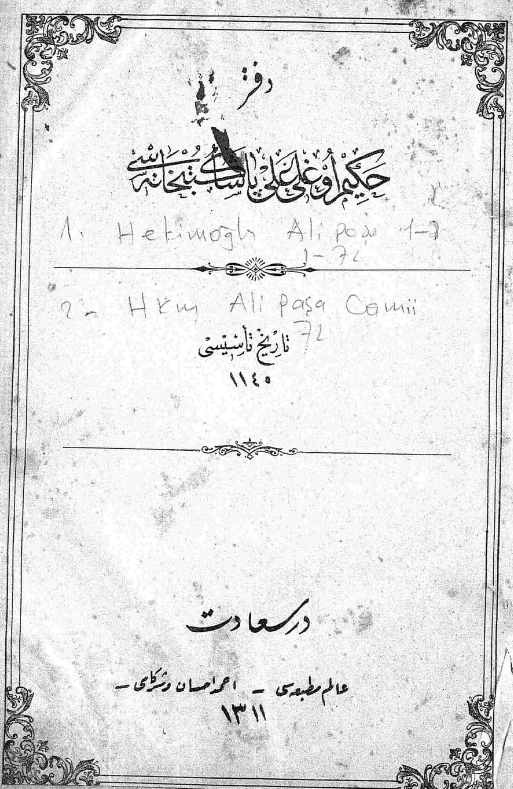 دفتر
حكيم اوغلى على پاشا كتبخانه سى
1. Hekimoğlu Ali paşa 1-
1-72
2- Hkm Ali paşa Camii
72
تاريخ تأسيسى
١١٤٥
درسعادت
عالم مطبعه سى – احمد احسان وشركاسى –
١٣١١